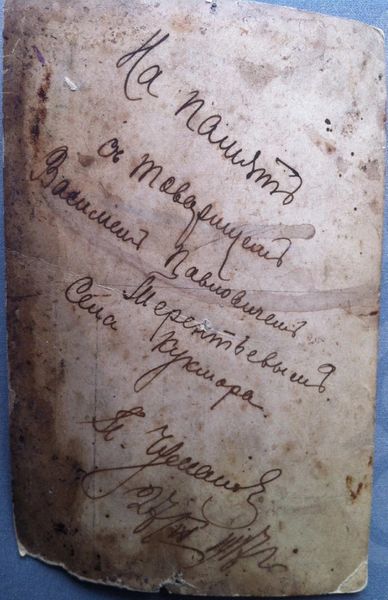 На память
съ Товарищемъ
Василиемъ Павловичемъ
Терентьевымъ.
Села Кукмора.
П.
27